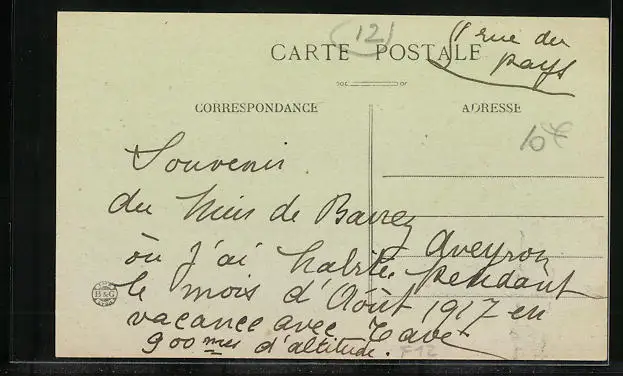 12
CARTE POSTALE
rue du
pays
CORRESPONDANCE
ADRESSE
10€
Souvenir
du Mur de Barrez
Aveyron
où j'ai habité pendant
le mois d'Août 1917 en
vacance avec
900 mes d'altitude.
B&G
F12